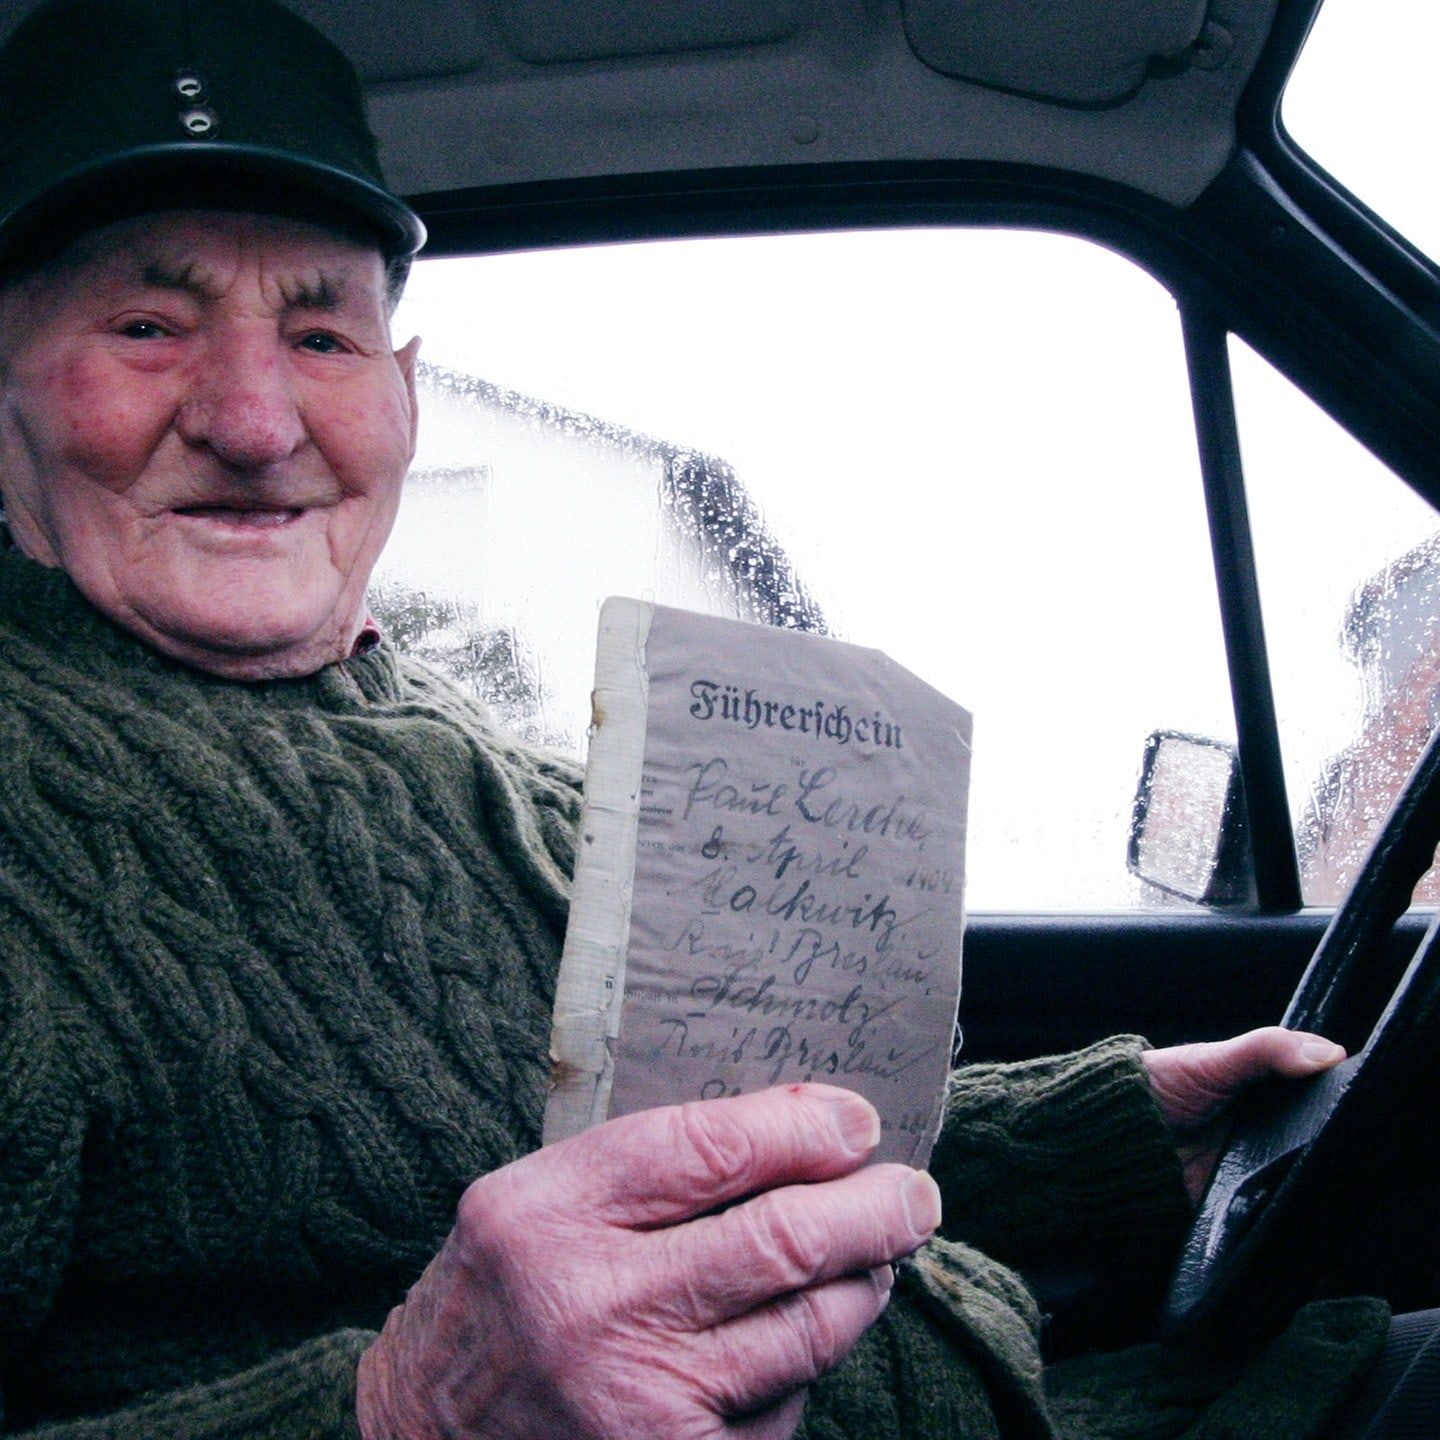 Führerschein
für
Paul Lerche,
8. April 1904
Malkwitz,
Kreis Breslau,
Schmolz,
Kreis Breslau,